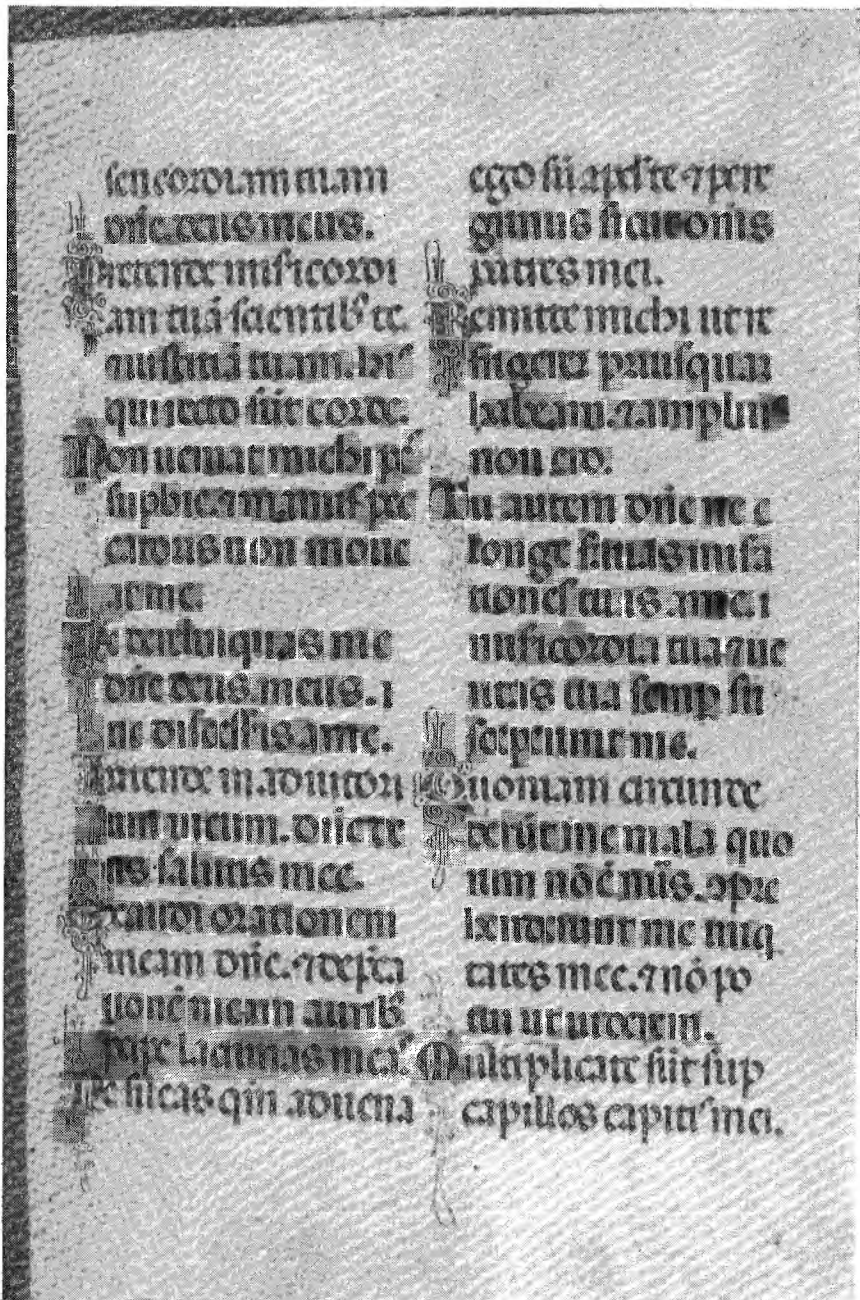 sericordiam tuam
dn̄e deus meus.
Pretende misericordi
am tuā scientib' te.
⁊ iustitiā tuam. his
qui recto sūt corde.
Non ueniat michi pes
supbie. ⁊ manus pec
catoris non moue
at me.
Ne derelinquas me
dn̄e deus meus.
ne discesseris a me.
Intende in adiutori
um meum. dn̄e de
us salutis mee.
Exaudi orationem
meam dn̄e. ⁊ depreca
tionē meam aurib'
pcipe lacrimas meas.
Ne sileas qm̄ aduena
ego sū apud te ⁊ pere
grinus sicut omnis
patres mei.
Remitte michi ut re
frigerer priusquam
habeam. ⁊ amplius
non ero.
Tu autem dn̄e ne e
longe facias misera
tiones tuas. a me.
misericordia tua ⁊ ue
ritas tua semp su
sceperunt me.
Quoniam circunde
derūt me mala quo
rum nō ē nūs. ɔpre
henderunt me iniq
tates mee. ⁊ nō po
tui ut uiderem.
Multiplicate sūt sup
capillos capitis mei.